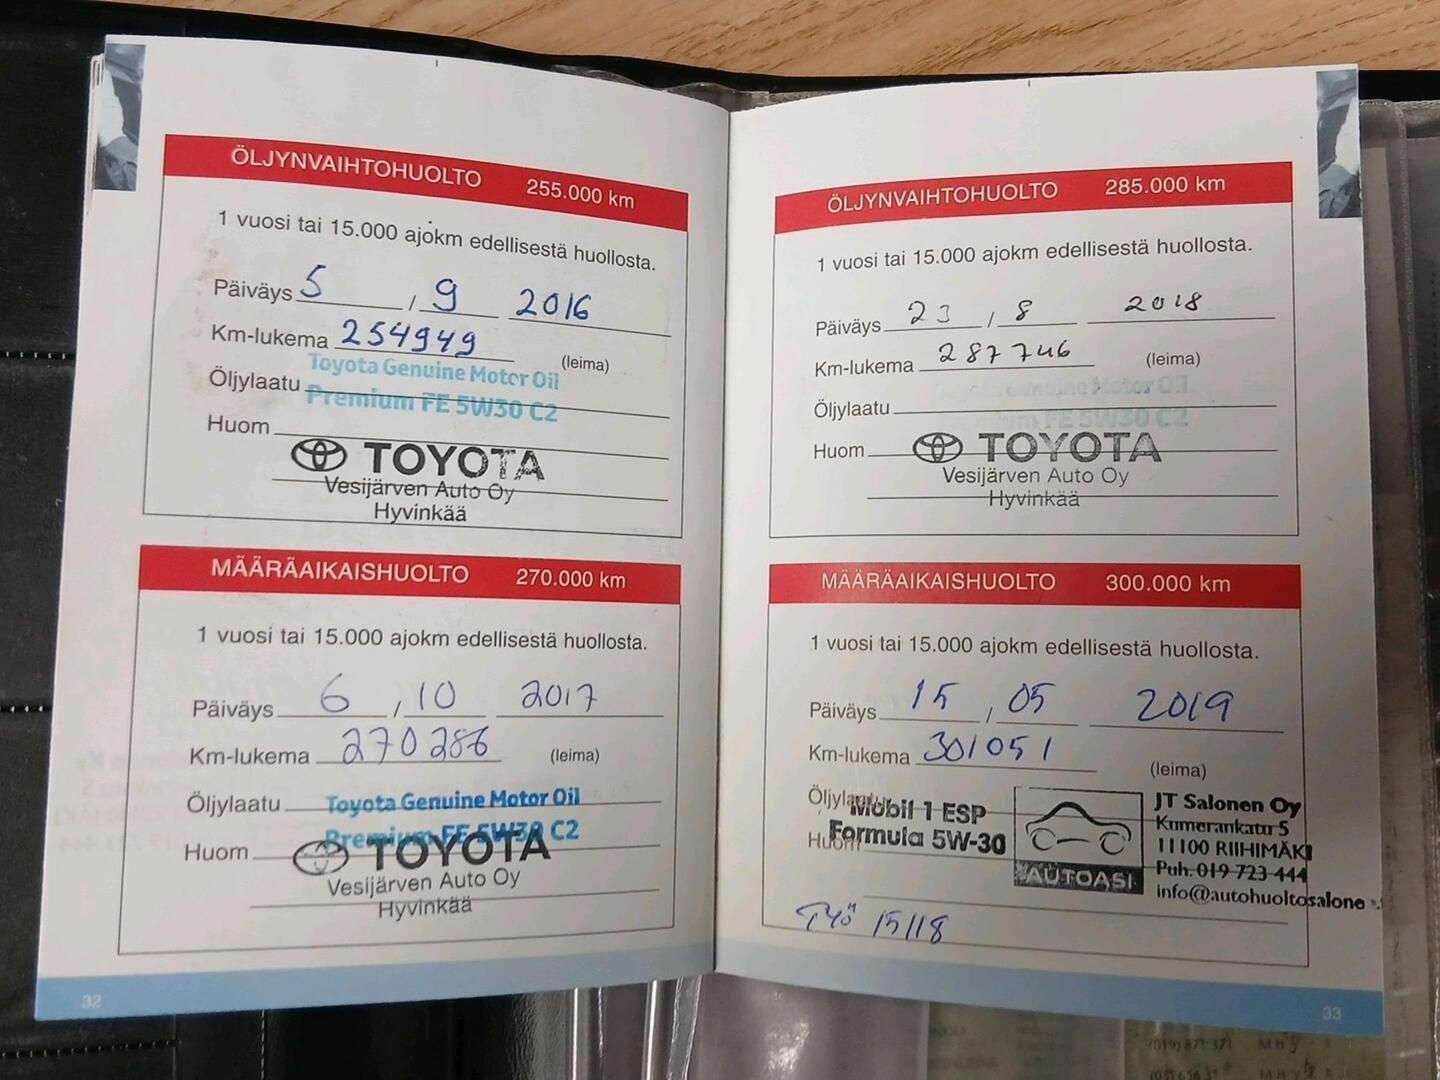 ÖLJYNVAIHTOHUOLTO 255.000 km
1 vuosi tai 15.000 ajokm edellisestä huollosta.
Päiväys 5 / 9 2016
Km-lukema 254949 (leima)
Toyota Genuine Motor Oil
Öljylaatu Premium FE 5W30 C2
Huom
TOYOTA
Vesijärven Auto Oy
Hyvinkää
MÄÄRÄAIKAISHUOLTO 270.000 km
1 vuosi tai 15.000 ajokm edellisestä huollosta.
Päiväys 6 / 10 2017
Km-lukema 270286 (leima)
Öljylaatu Toyota Genuine Motor Oil
Premium FE 5W30 C2
Huom TOYOTA
Vesijärven Auto Oy
Hyvinkää
32
ÖLJYNVAIHTOHUOLTO 285.000 km
1 vuosi tai 15.000 ajokm edellisestä huollosta.
Päiväys 23 / 8 2018
Km-lukema 287746 (leima)
Genuine Motor Oil
Öljylaatu
FE 5W30 C2
Huom TOYOTA
Vesijärven Auto Oy
Hyvinkää
MÄÄRÄAIKAISHUOLTO 300.000 km
1 vuosi tai 15.000 ajokm edellisestä huollosta.
Päiväys 15 / 05 2019
Km-lukema 301051 (leima)
Öljylaatu
Mobil 1 ESP
Formula 5W-30
Huom
AUTOASI
JT Salonen Oy
Kumerankatu 5
11100 RIIHIMÄKI
Puh. 019 723 444
info@autohuoltosalone
Työ 15118
33
(019) 871 371